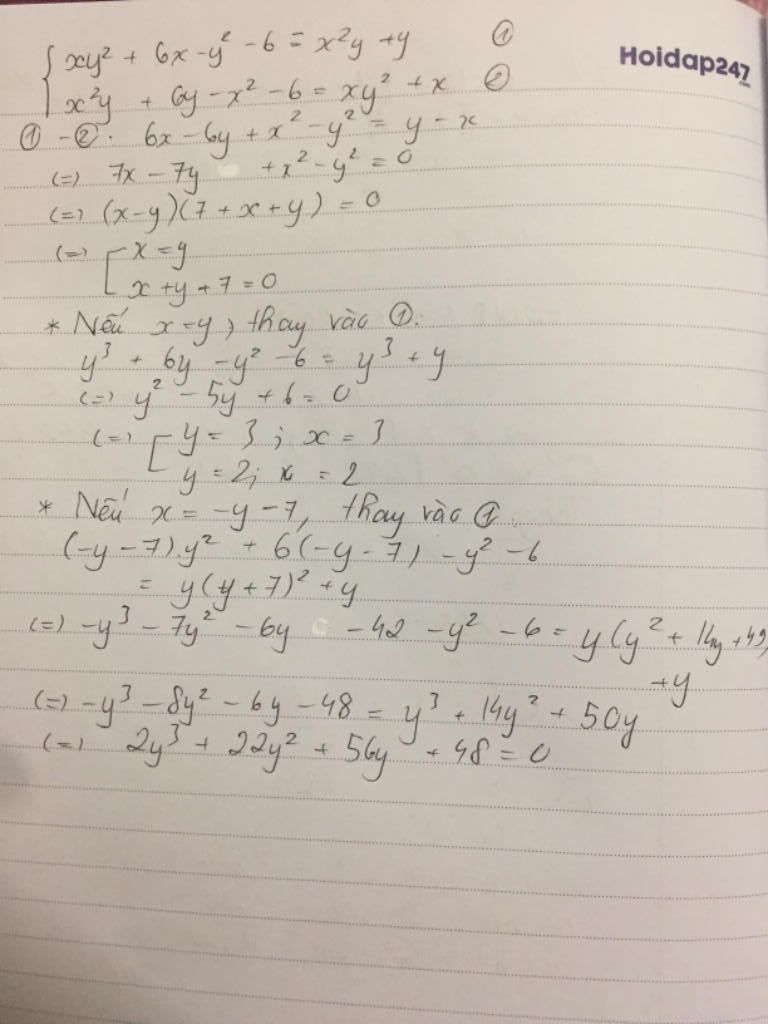 xy² + 6x - y² - 6 = x²y + y ①
Hoidap247
x²y + 6y - x² - 6 = xy² + x ②
① - ②. 6x - 6y + x² - y² = y - x
(=) 7x - 7y + x² - y² = 0
(=) (x-y)(7 + x + y) = 0
(=) [ x = y
x + y + 7 = 0
* Nếu x = y, thay vào ①:
y³ + 6y - y² - 6 = y³ + y
(=) y² - 5y + 6 = 0
(=) [ y = 3; x = 3
y = 2; x = 2
* Nếu x = -y - 7, thay vào ①
(-y - 7).y² + 6(-y - 7) - y² - 6
= y(y + 7)² + y
(=) -y³ - 7y² - 6y - 42 - y² - 6 = y(y² + 14y + 49)
+ y
(=) -y³ - 8y² - 6y - 48 = y³ + 14y² + 50y
(=) 2y³ + 22y² + 56y + 48 = 0